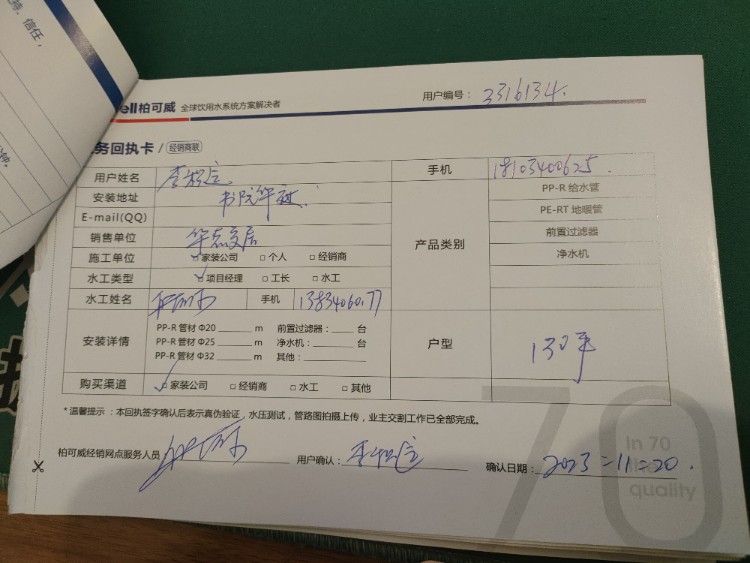 持，信任，
ell柏可威 全球饮用水系统方案解决者
用户编号： 3316134.
务回执卡 / 经销商联
用户姓名 手机 18103400625.
安装地址 书院华庭
E-mail(QQ)
销售单位 华杰交居
施工单位 家装公司 个人 经销商
水工类型 项目经理 工长 水工
水工姓名 手机
产品类别
PP-R 给水管
PE-RT 地暖管
前置过滤器
净水机
安装详情
PP-R 管材 Φ20 m 前置过滤器： 台
PP-R 管材 Φ25 m 净水机： 台
PP-R 管材 Φ32 m 其他：
户型 130平
购买渠道 家装公司 经销商 水工 其他
*温馨提示：本回执签字确认后表示真伪验证，水压测试，管路图拍摄上传，业主交割工作已全部完成。
柏可威经销网点服务人员： 用户确认： 确认日期： 2023-11-20.
70
In 70
quality